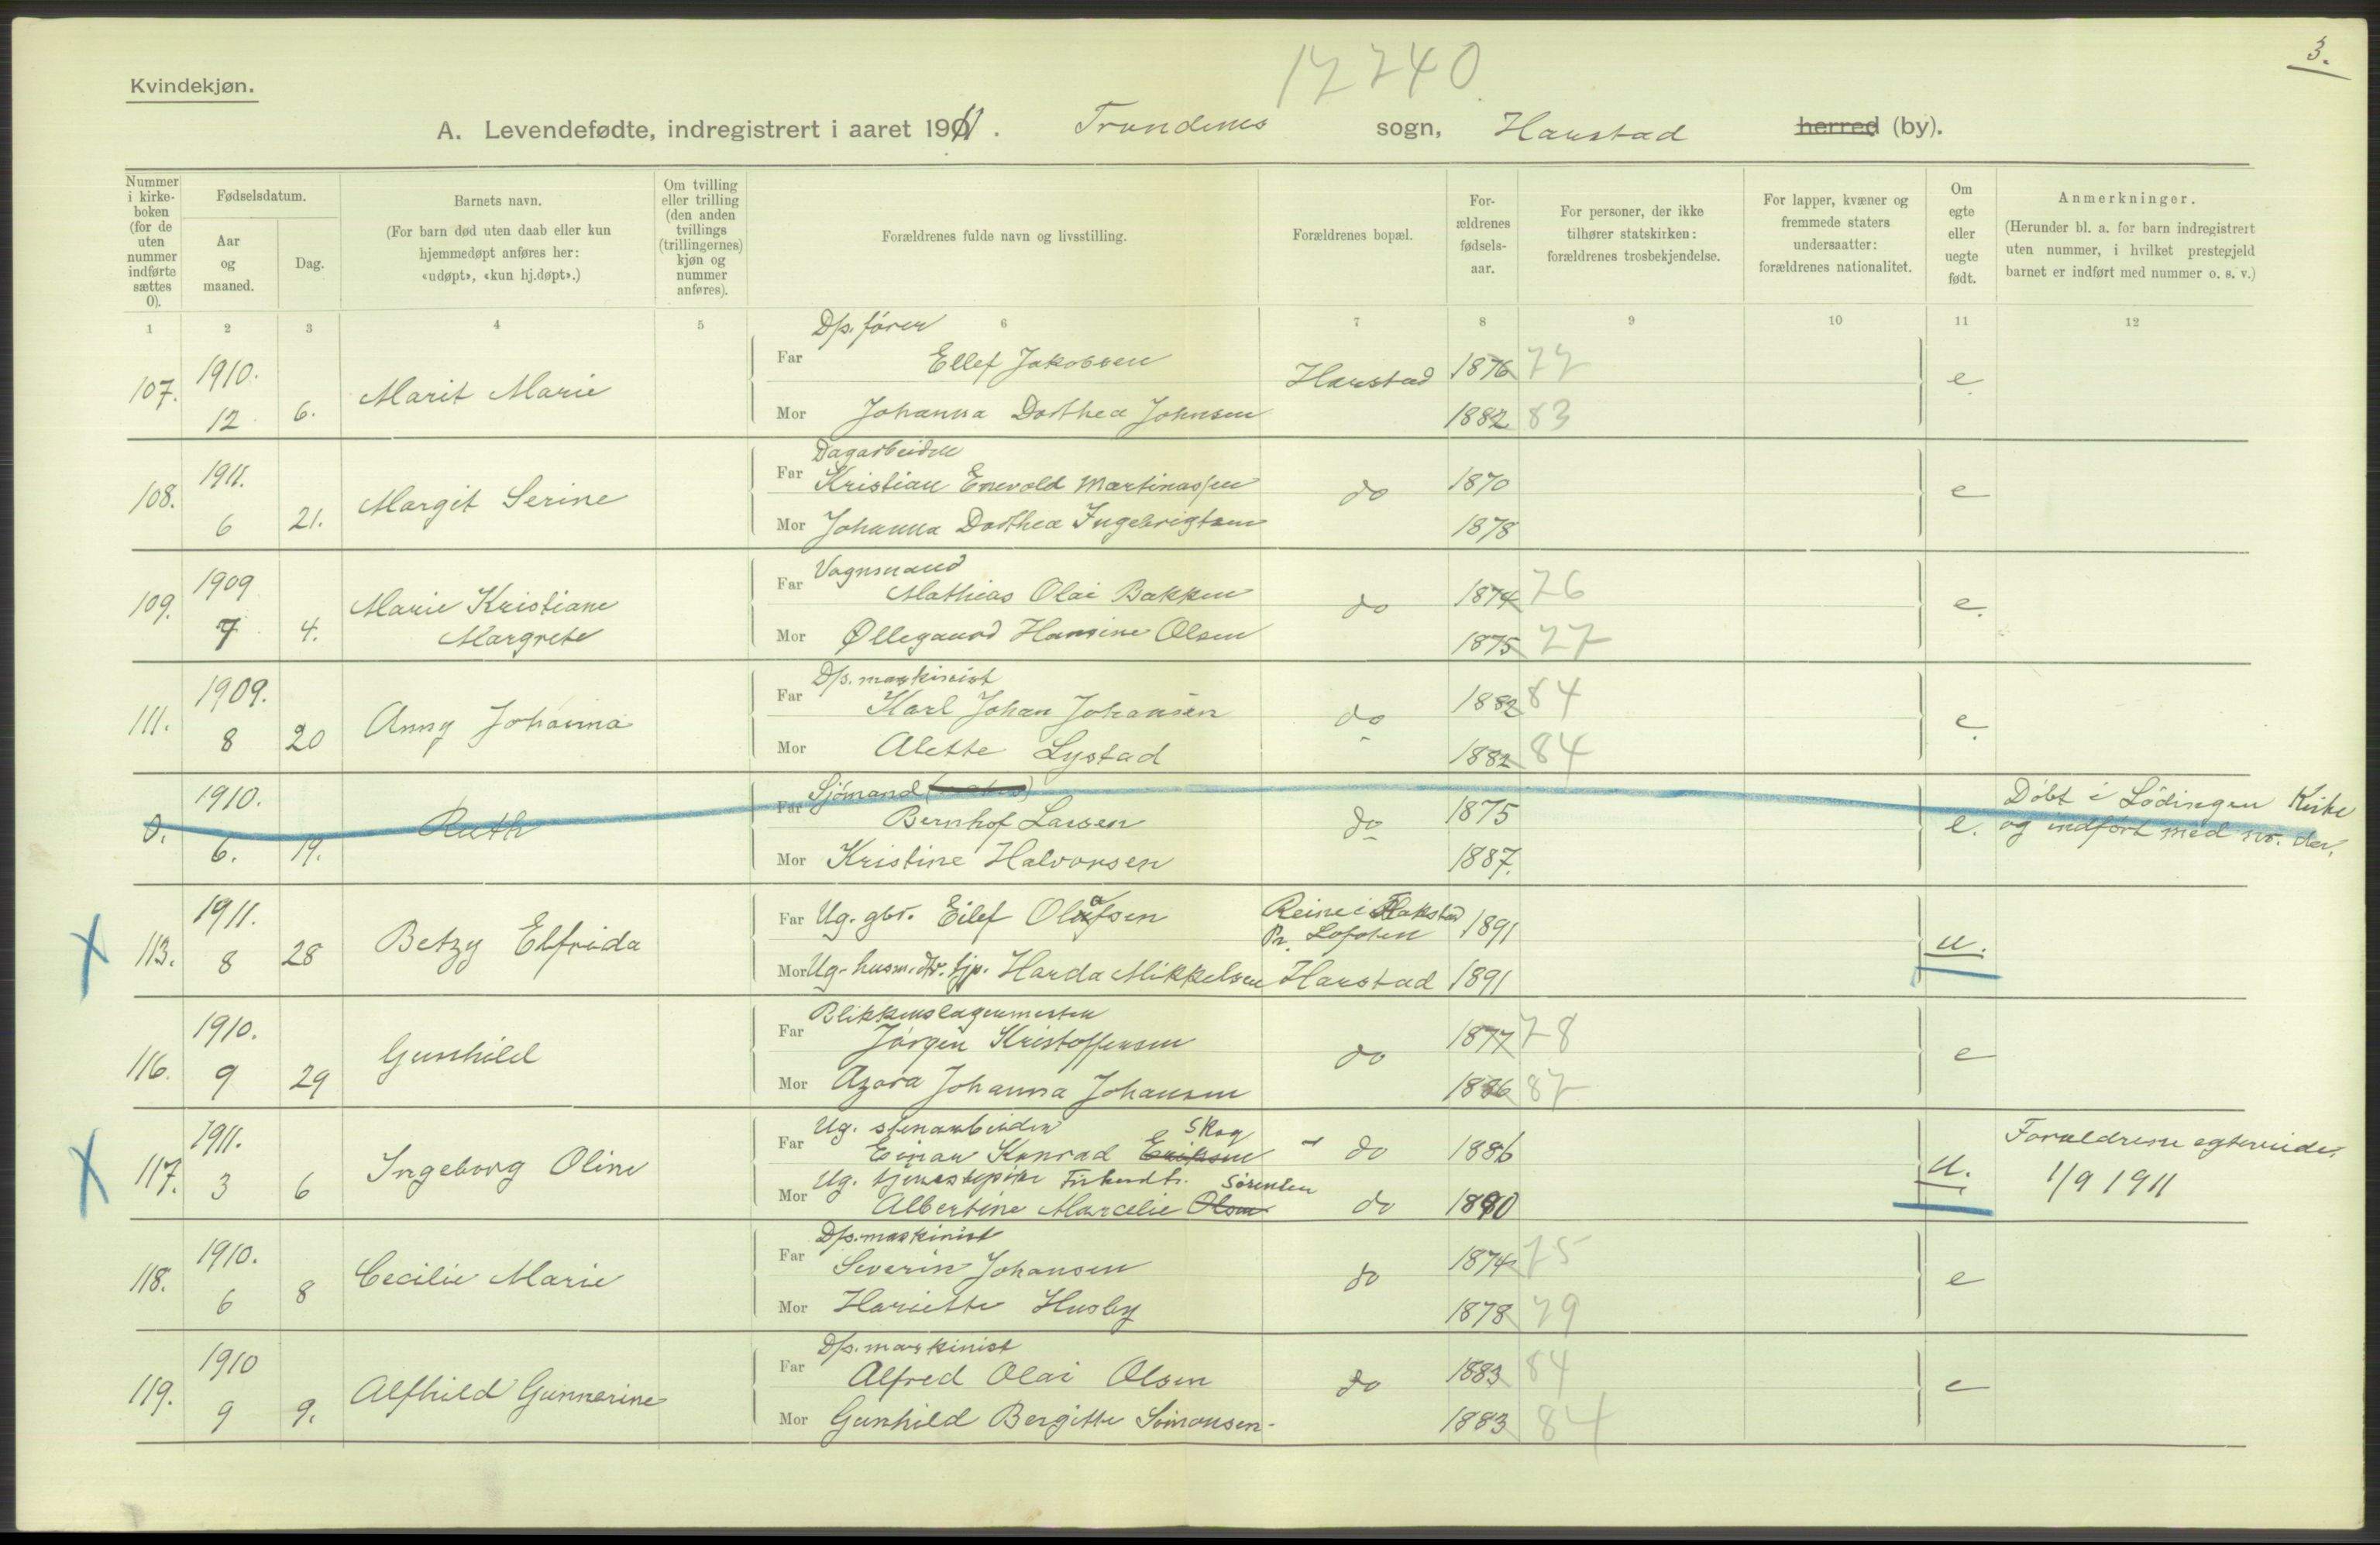 3.
Kvindekjøn.
17240
A. Levendefødte, indregistrert i aaret 1911. Trondenes sogn, Harstad herred (by).
Nummer i kirke-boken (for de uten nummer indførte sættes 0).
Fødselsdatum.
Aar og maaned.
Dag.
Barnets navn.
(For barn død uten daab eller kun hjemmedøpt anføres her: «udøpt», «kun hj.døpt».)
Om tvilling eller trilling (den anden tvillings (trillingernes) kjøn og nummer anføres).
Forældrenes fulde navn og livsstilling.
Forældrenes bopæl.
For-ældrenes fødsels-aar.
For personer, der ikke tilhører statskirken: forældrenes trosbekjendelse.
For lapper, kvæner og fremmede staters undersaatter: forældrenes nationalitet.
Om egte eller uegte født.
Anmerkninger.
(Herunder bl. a. for barn indregistrert uten nummer, i hvilket prestegjeld barnet er indført med nummer o. s. v.)
1 2 3 4 5 6 7 8 9 10 11 12
Dps. fører
107. 1910. 12 6. Marit Marie Far Ellef Jakobsen Harstad 1876 77 e
Mor Johanna Dorthea Johnsen 1882 83
Dagarbeider
108. 1911. 6 21. Margit Serine Far Kristian Enevold Martinassen do 1870 e
Mor Johanna Dorthea Ingebrigtsen 1878
Vognmand
109. 1909 7 4. Marie Kristiane Margrete Far Mathias Olai Bakken do 1874 76 e.
Mor Øllegaard Hansine Olsen 1875 77
Dps. maskinist
111. 1909. 8 20 Anny Johanna Far Karl Johan Johansen do 1882 84 e.
Mor Alette Lystad 1882 84
Sjømand
0. 1910. 6. 19. Ruth Far Bernhof Larsen do 1875 e. Døbt i Lødingen Kirke og indført med nr. der.
Mor Kristine Halvorsen 1887.
113. 1911. 8 28 Betzy Elfrida Far Ug. gbr. Eilef Olafsen Reine i Flakstad Pr. Lofoten 1891 u.
Mor Ug. husm.dtr. tjp. Harda Mikkelsen Harstad 1891
Blikkenslagermester
116. 1910. 9 29 Gunhild Far Jørgen Kristoffersen do 1877 78 e
Mor Azora Johanna Johansen 1886 87
Ug. stenarbeider Skog
117. 1911. 3 6 Ingeborg Oline Far Einar Konrad Eriksen do 1886 u. Forældrene egteviede 1/9 1911
Ug. tjenestepike Sørensen
Mor Albertine Marcelie Olsen do 1890
Dps. maskinist
118. 1910. 6 8 Cecilie Marie Far Severin Johansen do 1874 75 e
Mor Hariette Husby 1878 79
Dps. maskinist
119. 1910 9 9. Alfhild Gunnarine Far Alfred Olai Olsen do 1883 84 e
Mor Gunhild Bergitte Simonsen 1883 84